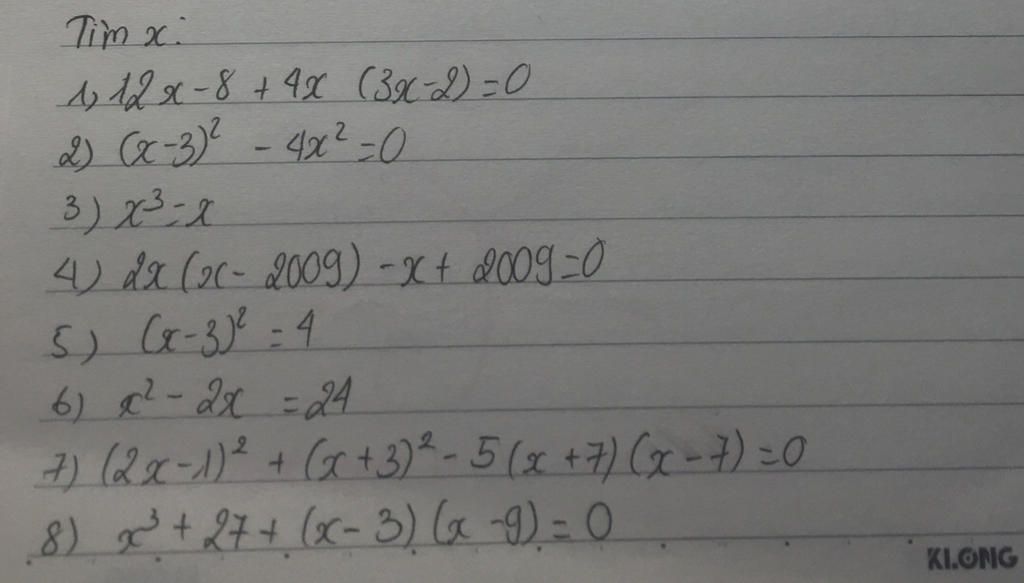 Tìm x:
1, 12x - 8 + 4x (3x - 2) = 0
2) (x - 3)² - 4x² = 0
3) x³ = x
4) 2x (x - 2009) - x + 2009 = 0
5) (x - 3)² = 4
6) x² - 2x = 24
7) (2x - 1)² + (x + 3)² - 5 (x + 7) (x - 7) = 0
8) x³ + 27 + (x - 3) (x - 9) = 0
KLONG